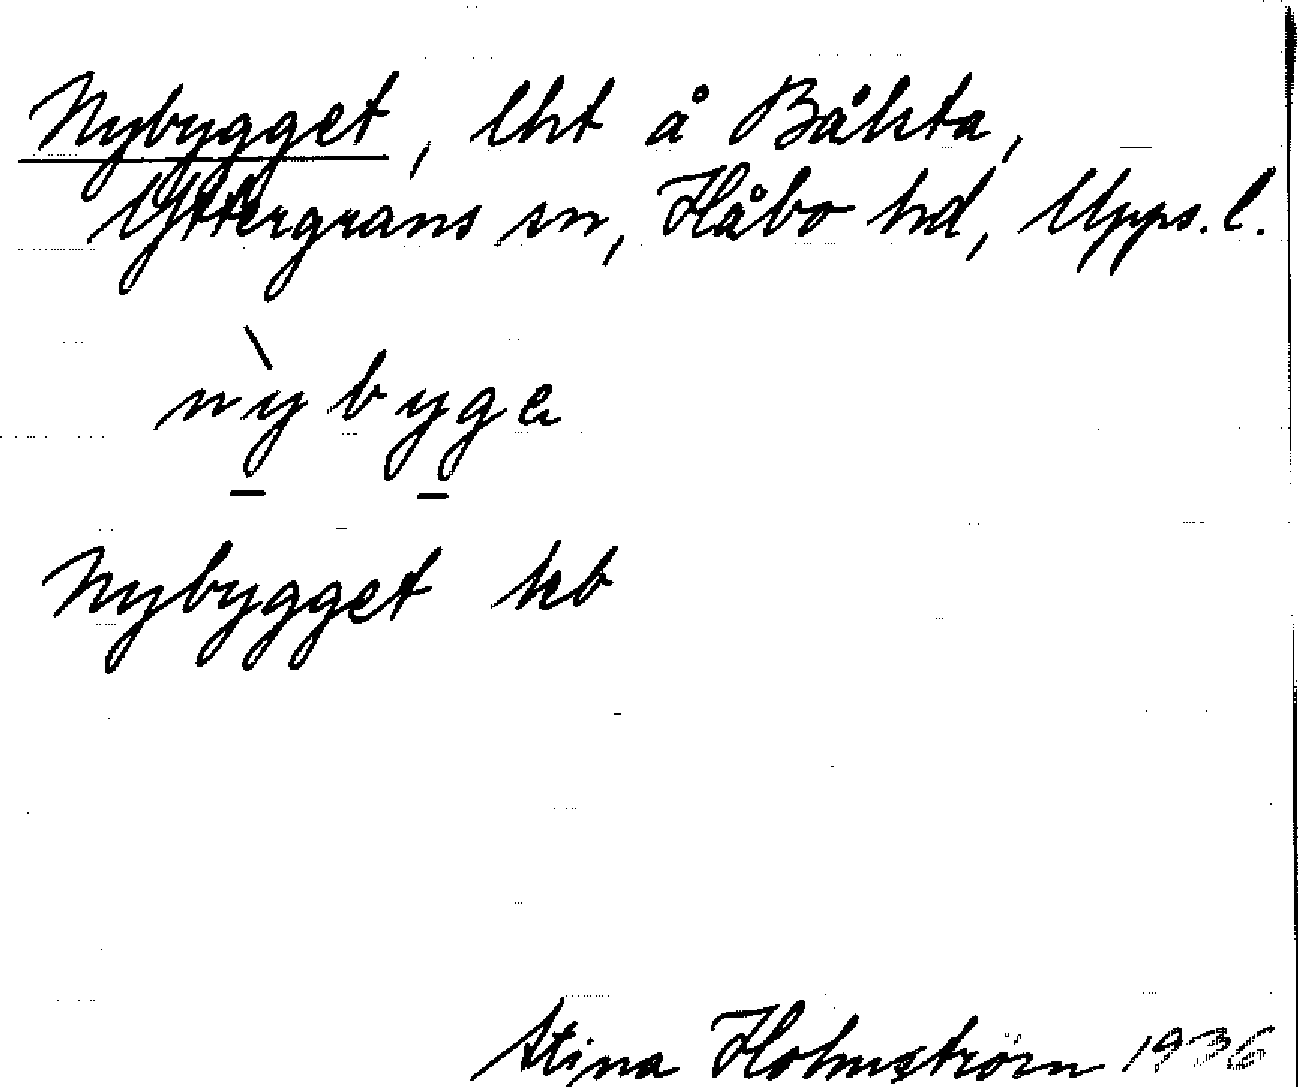 Nybygget, lht å Båhta,
Yttergrans sn, Håbo hd, Upps. l.
nỳbygeͅ
Nybygget kb
Stina Holmström 1936